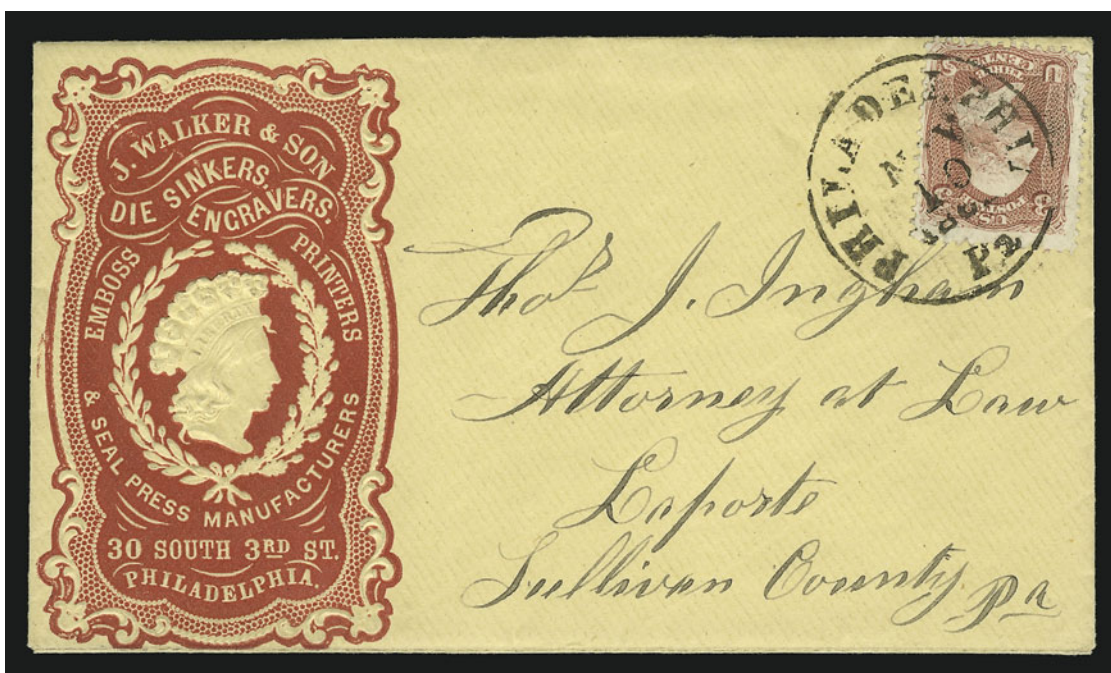 J. WALKER & SON
DIE SINKERS,
ENGRAVERS.
EMBOSS PRINTERS
& SEAL PRESS MANUFACTURERS
LIBERTY
30 SOUTH 3RD ST.
PHILADELPHIA.
PHILADELPHIA
Thos J. Ingham
Attorney at Law
Laporte
Sullivan County Pa
U S
THREE CENTS
U.S. POSTAGE
3 3